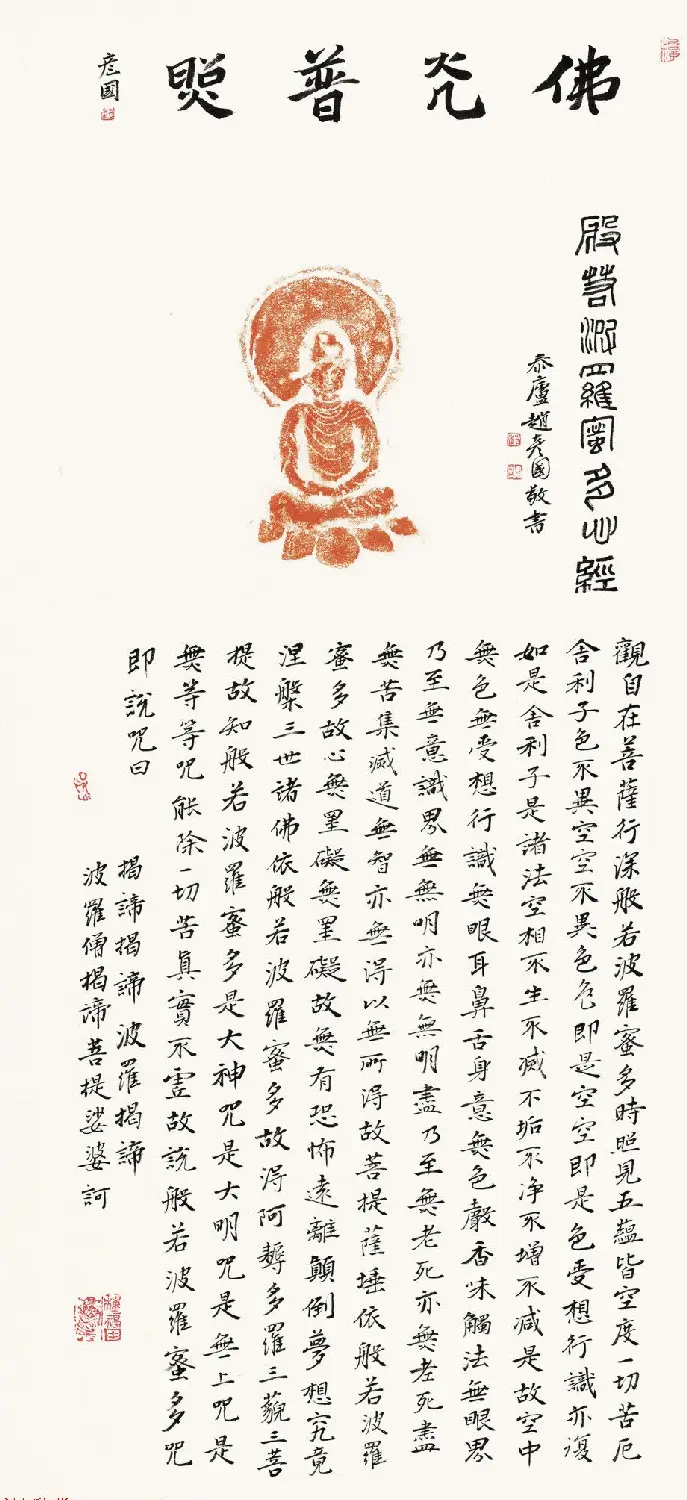 佛光普照
彦國
般若波羅蜜多心經
泰廬趙彦國敬書
觀自在菩薩行深般若波羅蜜多時照見五蘊皆空度一切苦厄
舍利子色不異空空不異色色即是空空即是色受想行識亦復
如是舍利子是諸法空相不生不滅不垢不净不增不減是故空中
無色無受想行識無眼耳鼻舌身意無色聲香味觸法無眼界
乃至無意識界無無明亦無無明盡乃至無老死亦無老死盡
無苦集滅道無智亦無得以無所得故菩提薩埵依般若波羅
蜜多故心無罣礙無罣礙故無有恐怖遠離顛倒夢想究竟
涅槃三世諸佛依般若波羅蜜多故得阿耨多羅三藐三菩
提故知般若波羅蜜多是大神咒是大明咒是無上咒是
無等等咒能除一切苦真實不虛故說般若波羅蜜多咒
即說咒曰
揭諦揭諦波羅揭諦
波羅僧揭諦菩提娑婆訶